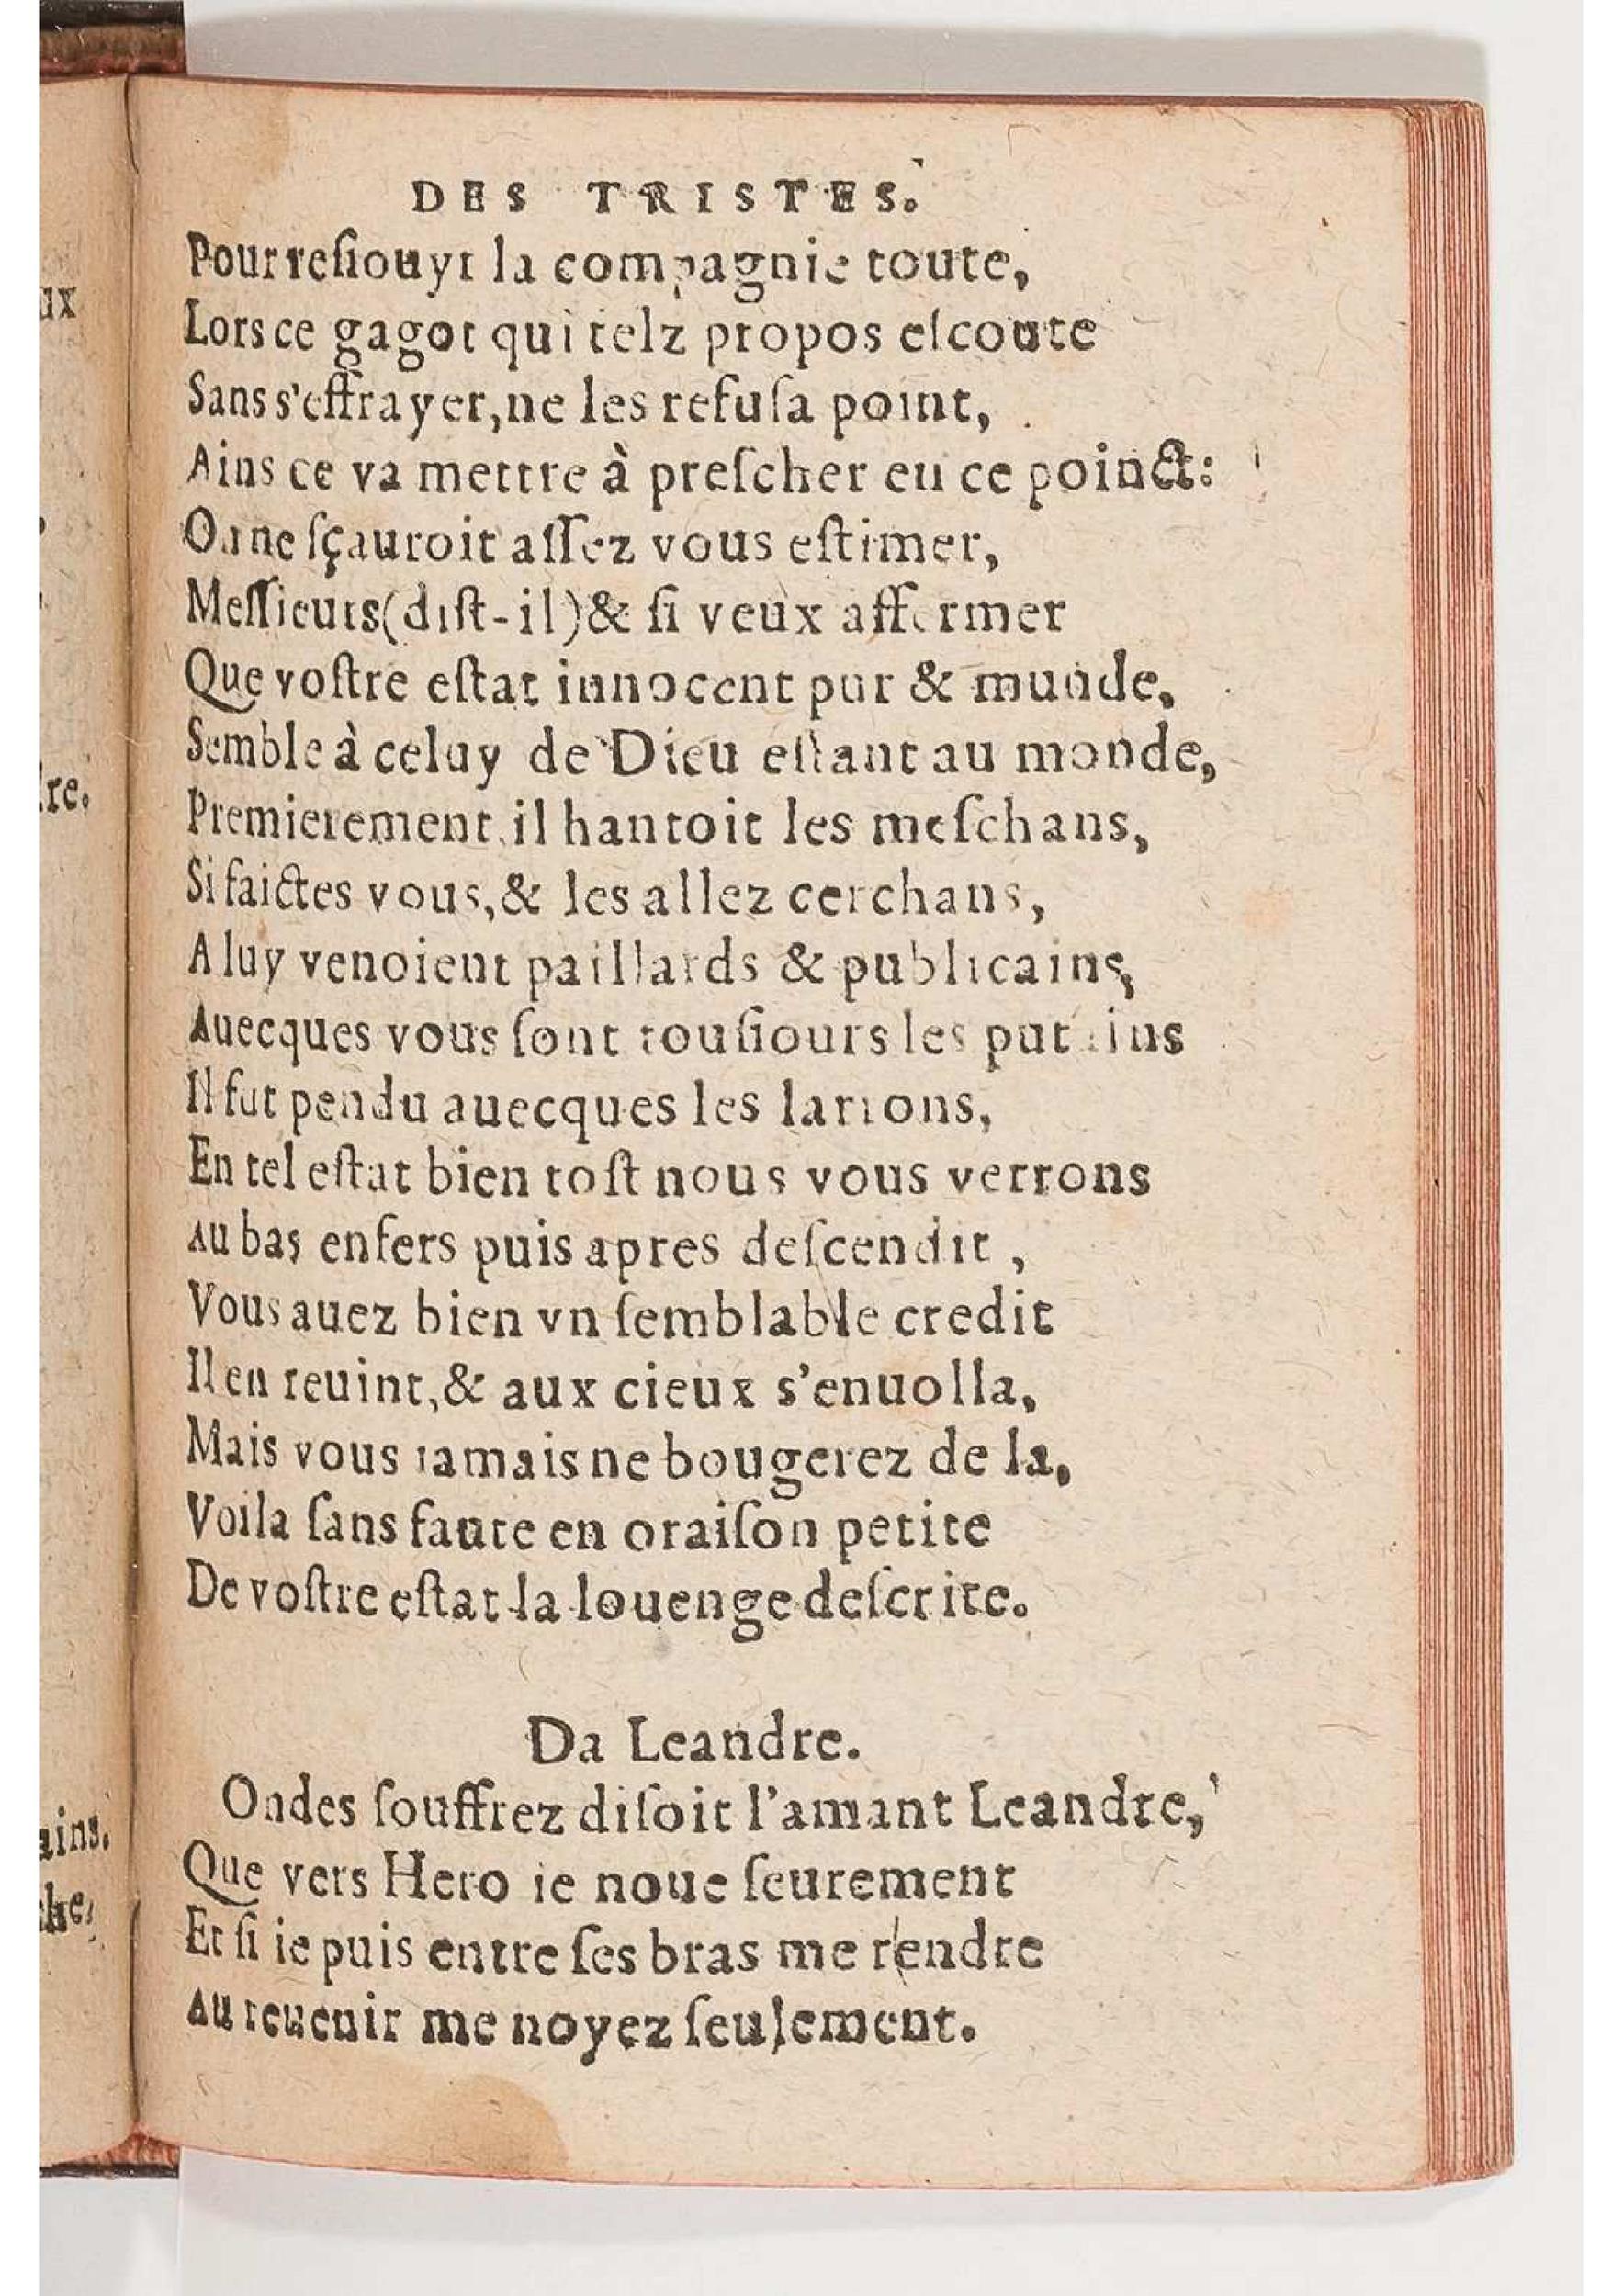 DES TRISTES.
Pour resiouyr la compagnie toute,
Lors ce gagot qui telz propos escoute
Sans s'effrayer, ne les refusa point,
Ains ce va mettre à prescher en ce poinct:
On ne sçauroit assez vous estimer,
Messieurs (dist-il) & si veux affermer
Que vostre estat innocent pur & munde,
Semble à celuy de Dieu estant au monde,
Premierement il hantoit les meschans,
Si faictes vous, & les allez cerchans,
A luy venoient paillards & publicains,
Auecques vous sont tousiours les putains
Il fut pendu auecques les larrons,
En tel estat bien tost nous vous verrons
Au bas enfers puis apres descendit,
Vous auez bien vn semblable credit
Il en reuint, & aux cieux s'enuolla,
Mais vous iamais ne bougerez de la,
Voila sans faute en oraison petite
De vostre estat la louenge descrite.
Da Leandre.
Ondes souffrez disoit l'amant Leandre,
Que vers Hero ie noue seurement
Et si ie puis entre ses bras me rendre
Au reuenir me noyez seulement.
ux
re.
ains.
he,